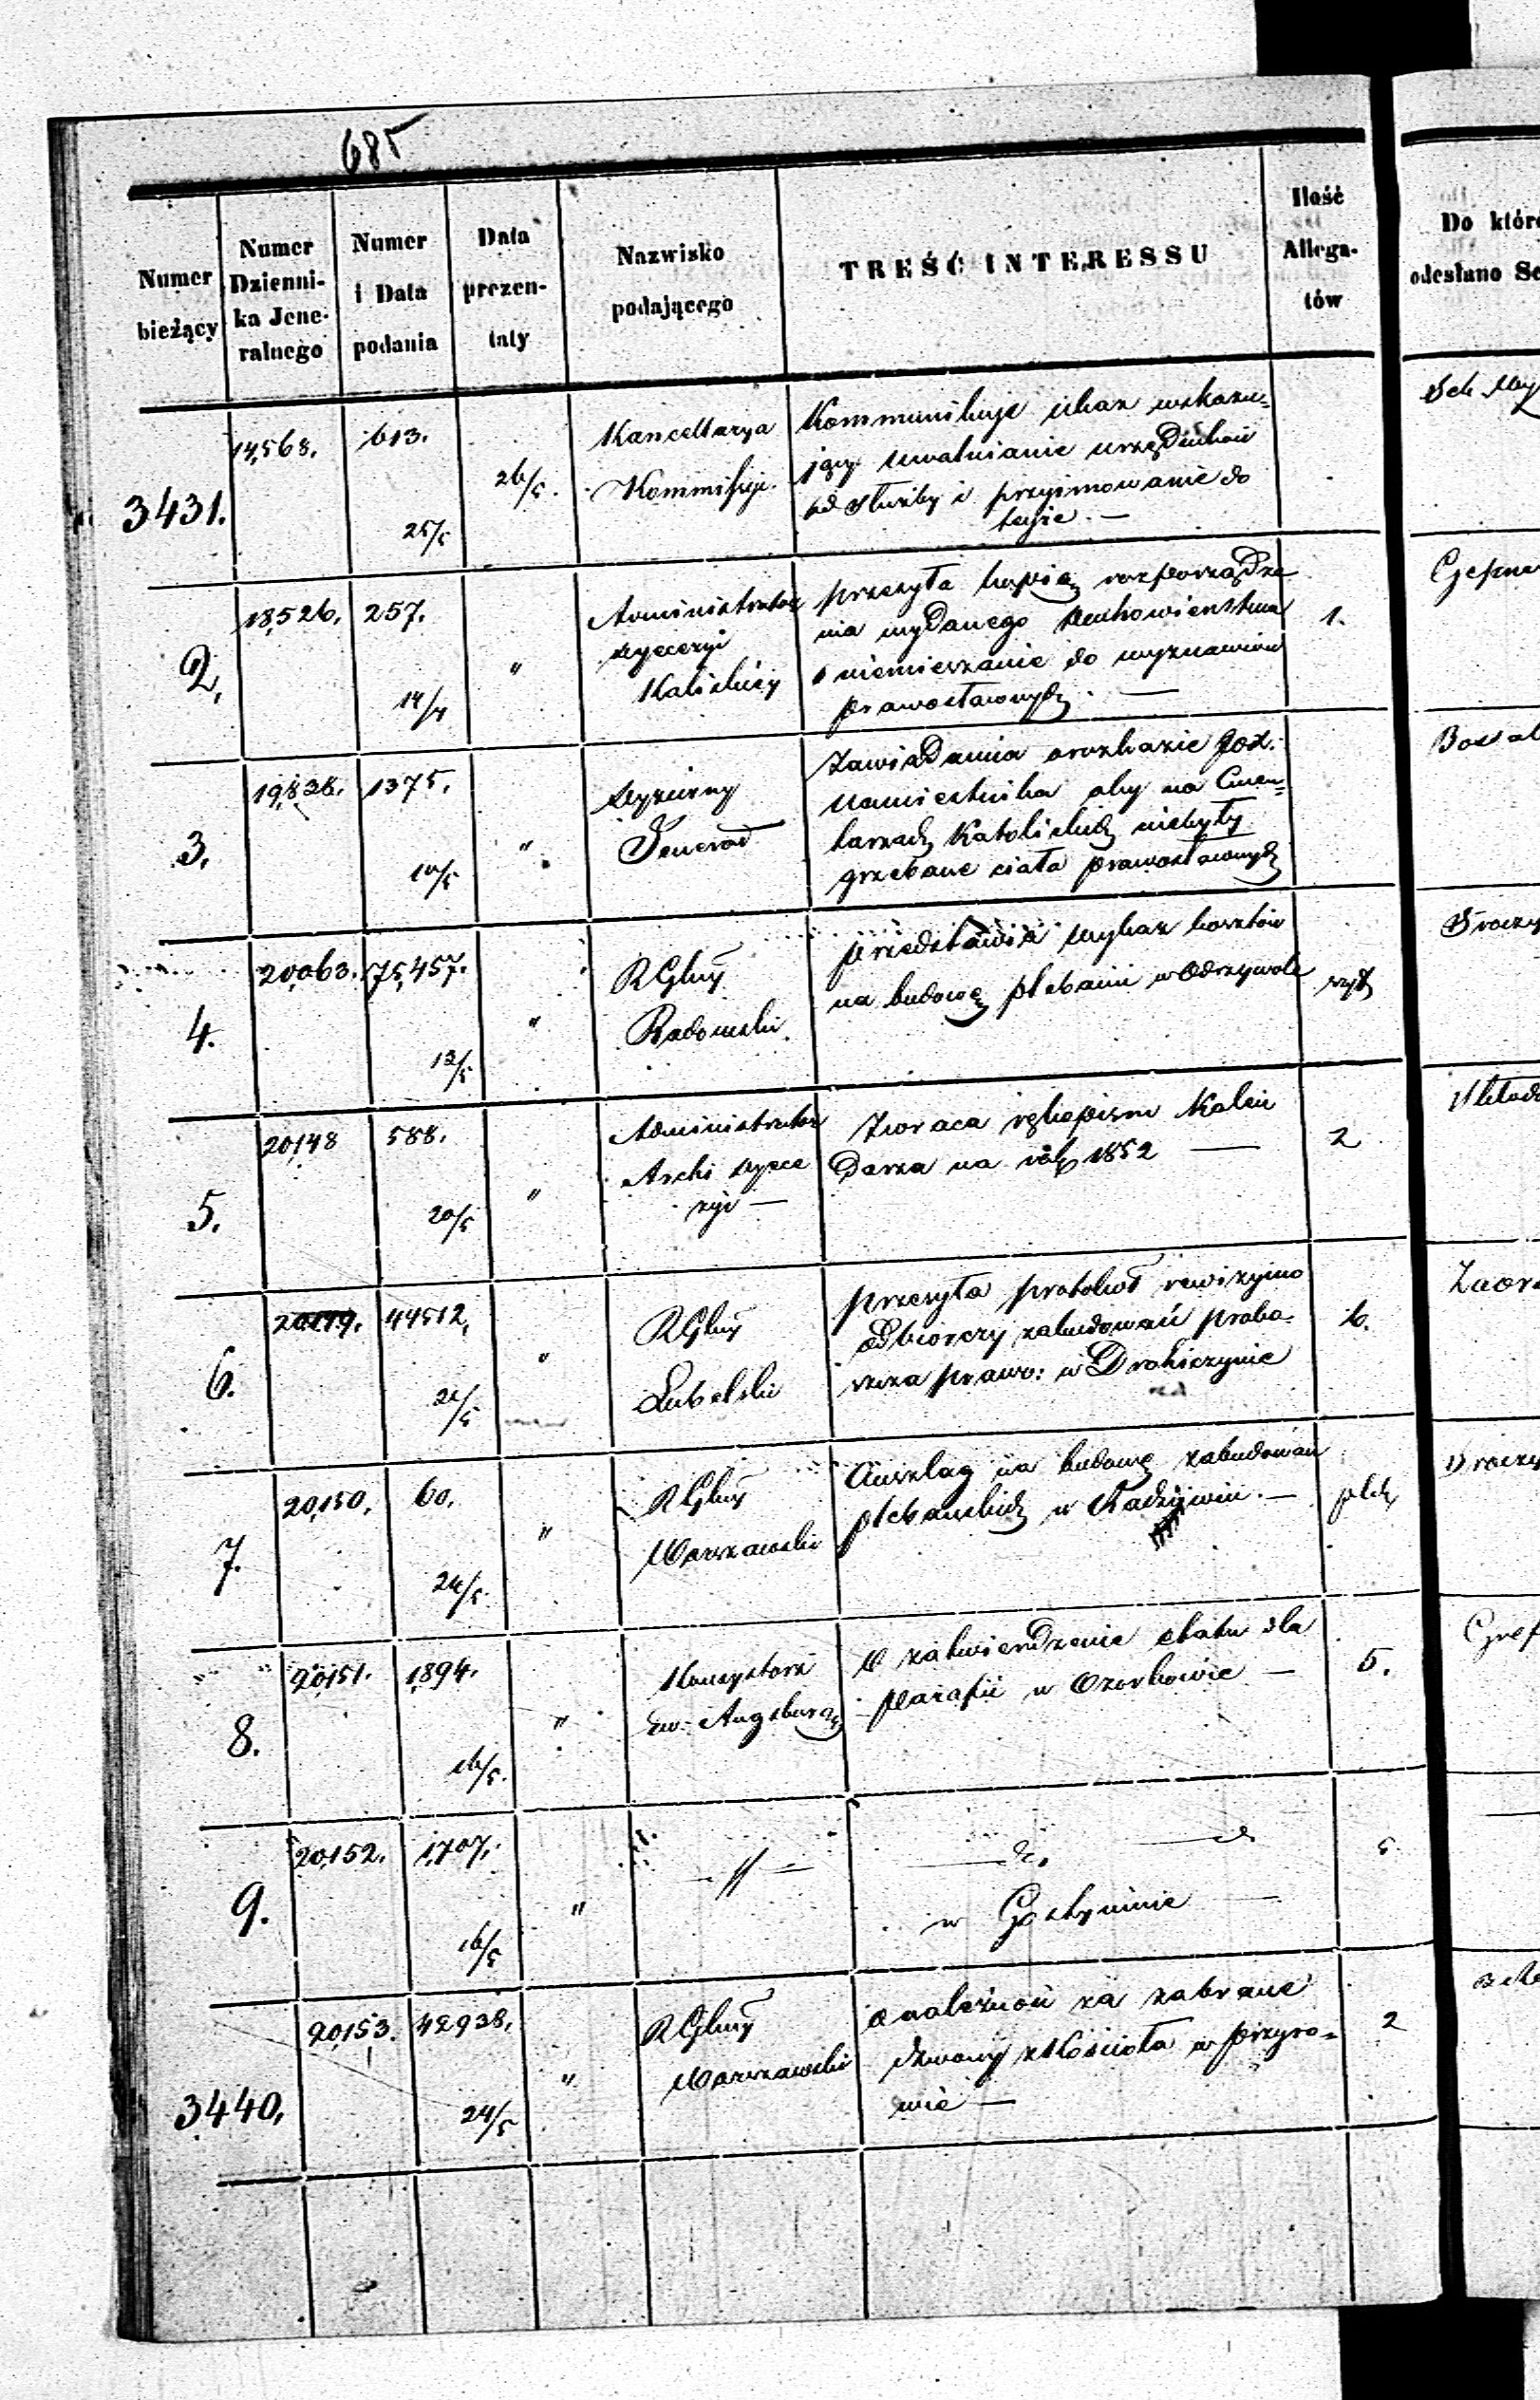 685
Numer bieżący
Numer Dzienni-ka Jene-ralnego
Numer i Data podania
Data prezen-taty
Nazwisko podającego
TREŚĆ INTERESSU
Ilość Allega-tów
Do któr
odesłano Se
3431.
14,568.
613.
25/5
26/5.
Kancellarya
Kommissyi.
Kommunikuje ukaz wskazu=
jący uwalnianie urzędników
od służby i przyimowanie do
tejże. —
2,
18,526.
257.
14/4
"
Administrator
dyecezyi
Kaliskiéy
przesyła kopią rozporządze
nia wydanego duchowieństwu
o niemieszanie do wyznawców
prawosławnych. —
1.
3.
19,838.
1375.
10/5
"
Dyżurny
Jenerał
Zawiadamia o rozkazie JOX.
Namiestnika aby na Cmen=
tarzach Katolickich niebyły
grzebane ciała prawosławnych
4.
20,063.
75,457.
13/5
"
RGlny
Radomski
przedstawia wykaz kosztów
na budowę plebanii w Odrzywole
szyt
5.
20,148
588.
20/5
"
Administrator
Archi dyece
zyi —
Zwraca rękopism Kalen
darza na rok 1852 —
2
6.
20,149.
44512,
"
RGlny
Lubelski
przesyła protokół rewizyino
odbiorczy zabudowań probo-
szcza prawo: w Drohiczynie
6.
7.
20,150.
60.
24/5.
"
RGlny
Warszawski
Anszlag na budowę zabudowań
plebanskich w Radziwiu. —
8.
20,151.
1,894.
16/5.
"
Konsystorz
Ew- Augsburg
O zatwierdzenie etatu dla
parafii w Ozorkowie —
5.
9.
20,152.
1,707.
16/5
"
— " —
w Gostyninie —
5
3440,
20,153.
42938,
24/5
"
RGlny
Warszawski
o należność za zabrane
dzwony z Kościoła w Przyro=
wie —
2